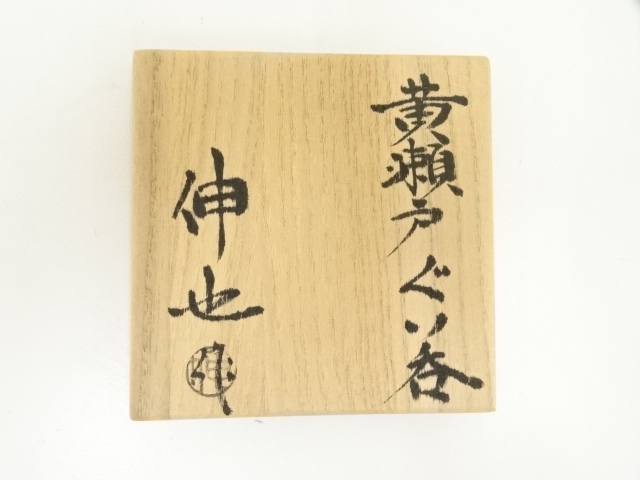 黄瀬戸ぐい呑
伸也作